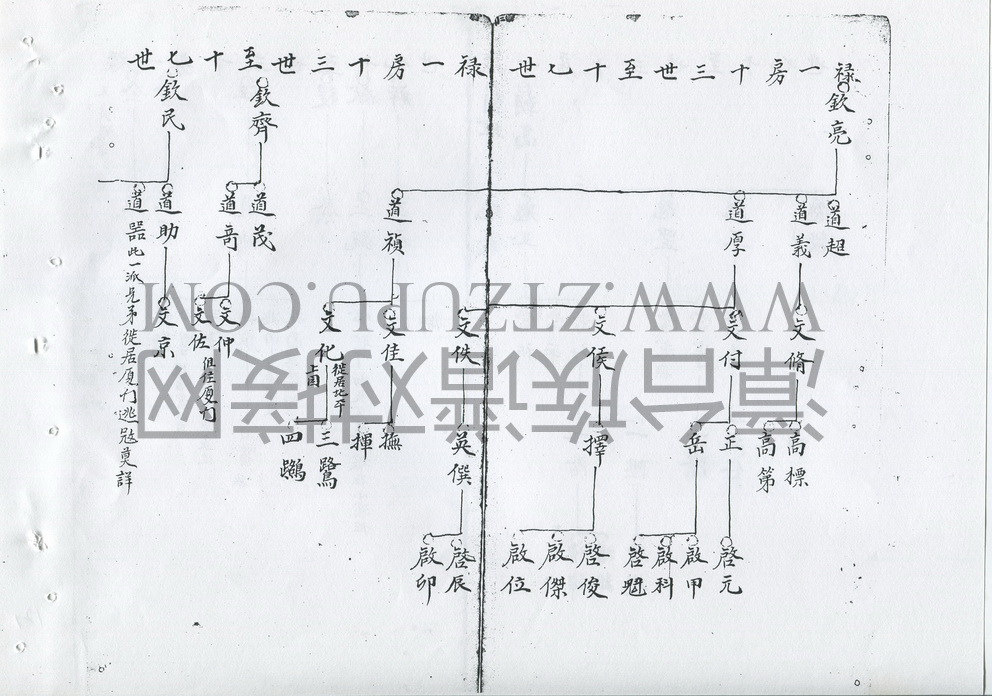 禄一房十三世至十七世
欽亮
道超
道義
道厚
文脩
文付
文侯
文佚
高標
高第
正
岳
擇
英僎
啟元
啟甲
啟科
啟魁
啟俊
啟傑
啟位
啟辰
啟卯
禄一房十三世至十七世
道禎
文佳
文化
徙居北平
上国
撫
揮
三鷺
四鵷
欽齊
道茂
道奇
文仲
文佐
俱住厦门
欽民
道助
道器
此一派兄弟徙居厦门逃冠莫詳
文京
WWW.ZTZUPU.COM
漳台族谱对接网